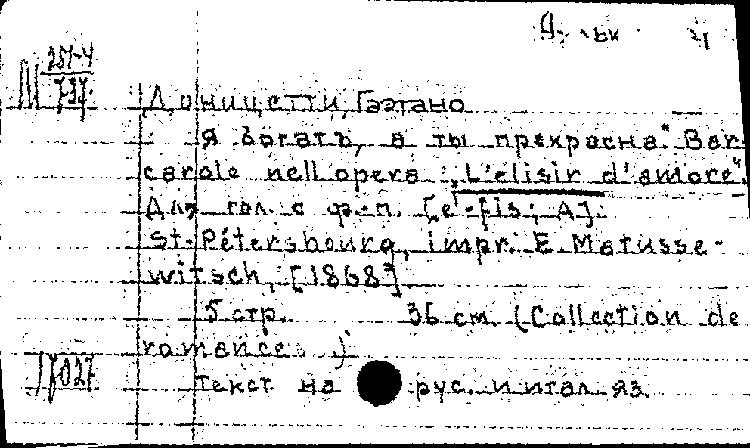 М 257-4
737
Доницетти, Гаэтано
Я богатъ, а ты прекрасна." Bar-
carole nell opera "L'elisir d'amore".
Для гол. с ф-п. [e¹-fis²; A].
St.-Pétersbourg, impr. E. Matusse-
witsch, [1868]
5 стр. 36 см. (Collection de
romances .)
17027
Текст на рус. и итал. яз.